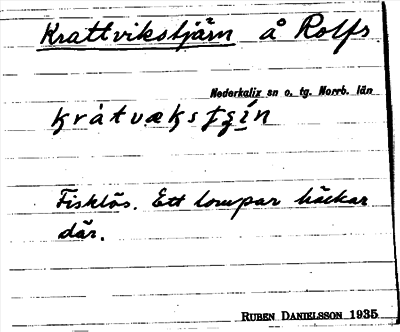 Krattvikstjärn å Rolfs
Nederkalix sn o. tg. Norrb. län
Fisklös. Ett lompar häckar
där.
RUBEN DANIELSSON 1935